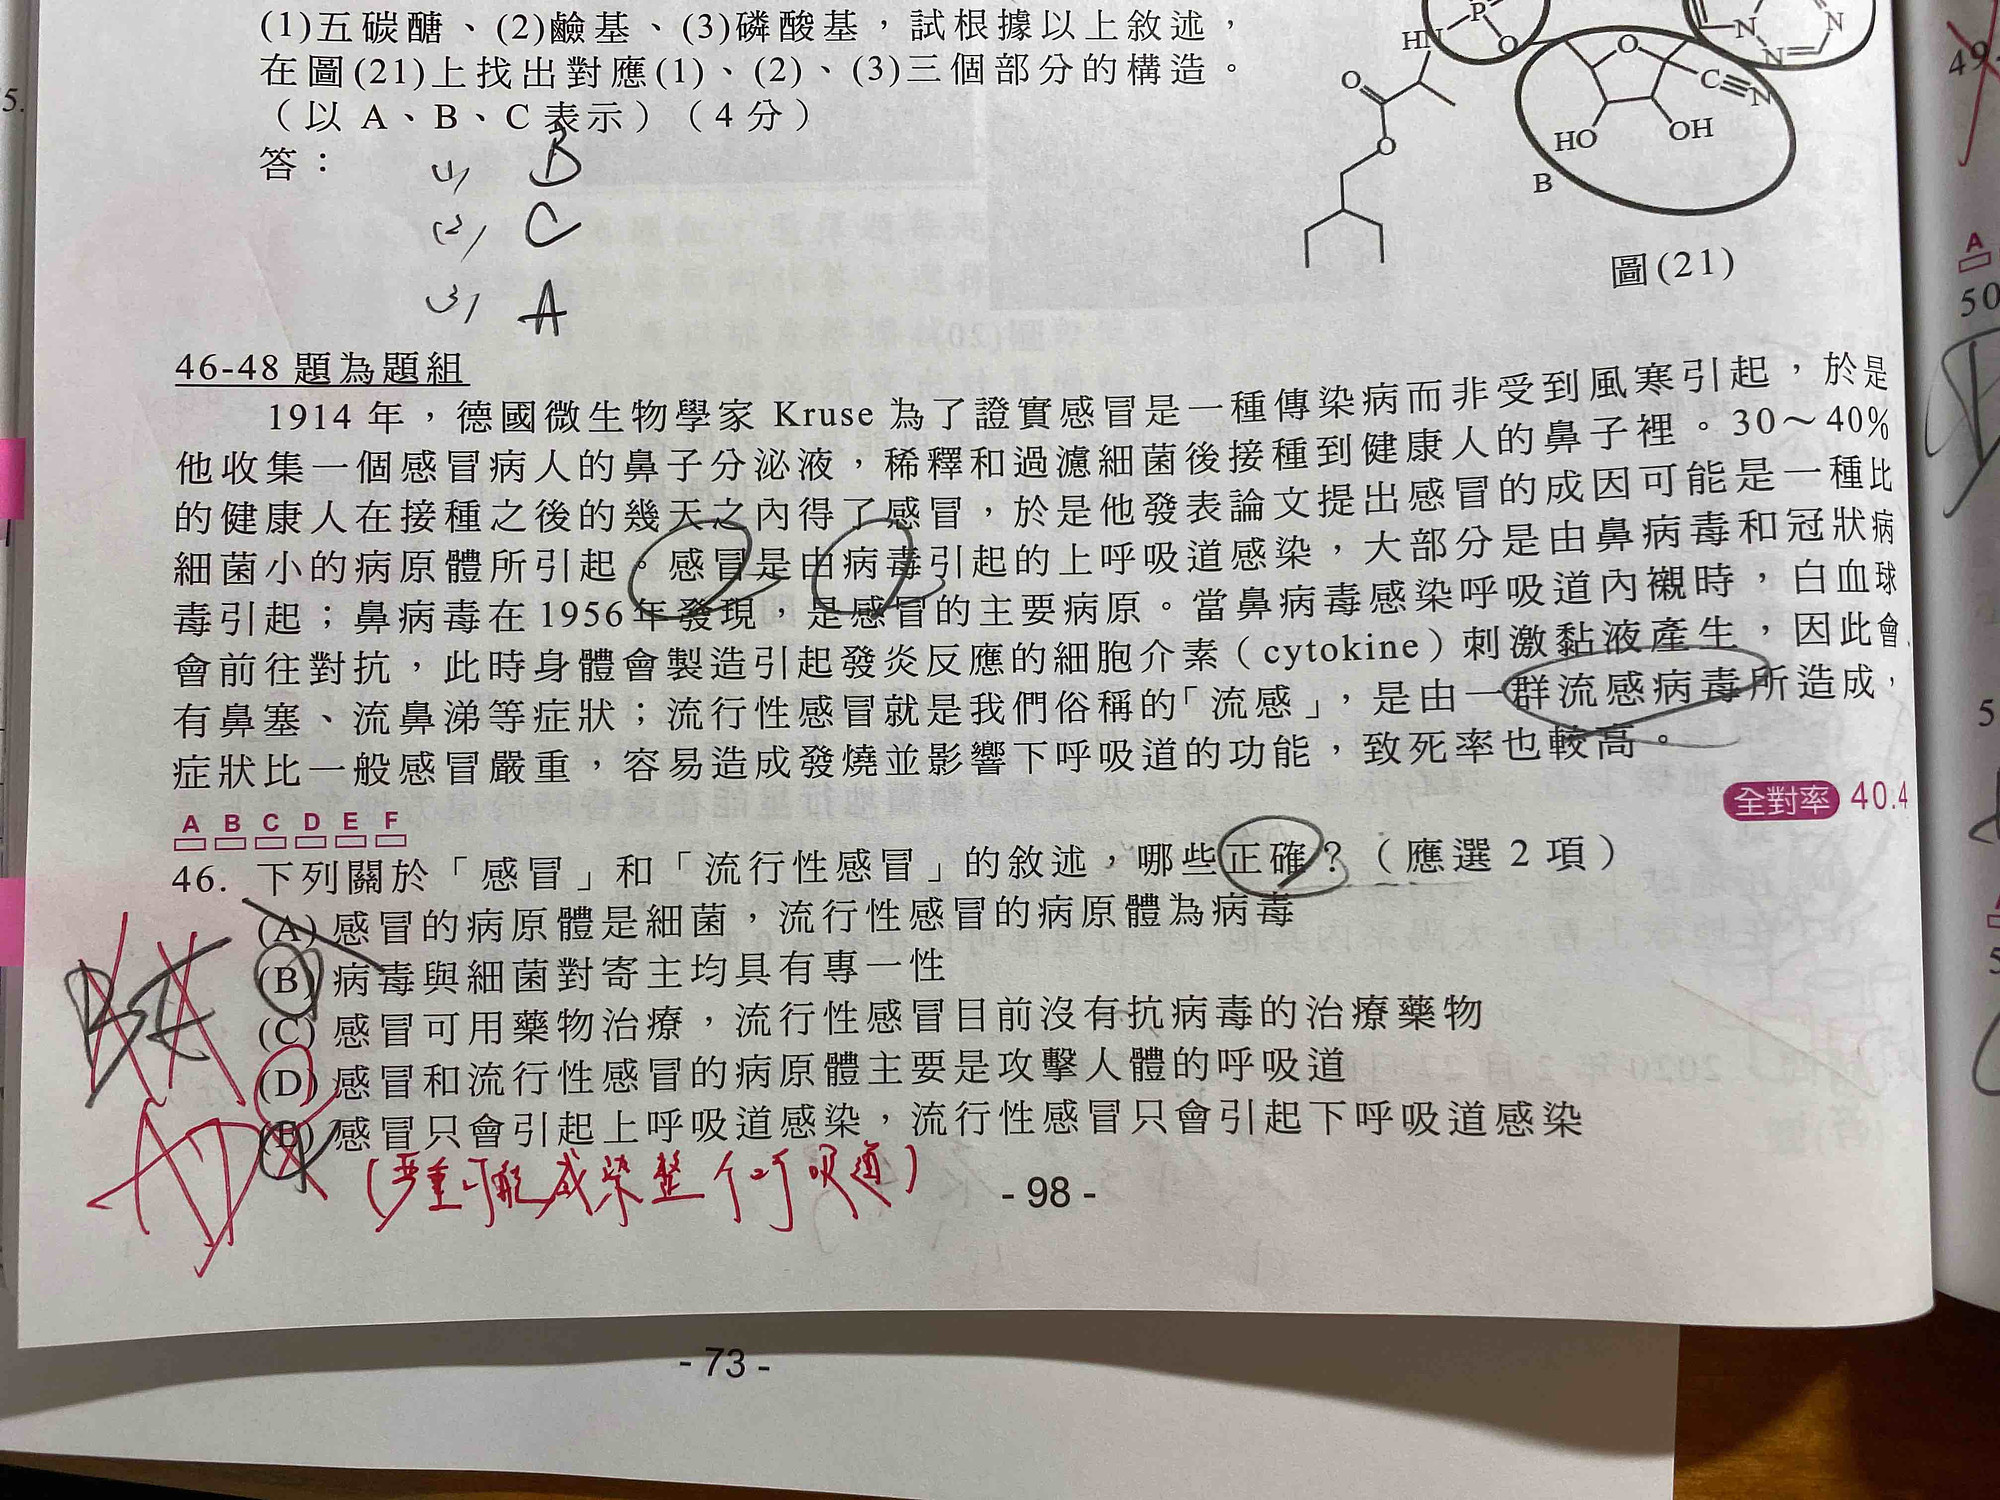 (1)五碳醣、(2)鹼基、(3)磷酸基，試根據以上敘述，
在圖(21)上找出對應(1)、(2)、(3)三個部分的構造。
（以 A、B、C 表示）（4 分）
答：
(1) B
(2) C
(3) A
HN
P
O
O
O
O
N
N
N
C≡N
HO
OH
B
圖(21)
46-48 題為題組
1914 年，德國微生物學家 Kruse 為了證實感冒是一種傳染病而非受到風寒引起，於是
他收集一個感冒病人的鼻子分泌液，稀釋和過濾細菌後接種到健康人的鼻子裡。30～40%
的健康人在接種之後的幾天之內得了感冒，於是他發表論文提出感冒的成因可能是一種比
細菌小的病原體所引起。感冒是由病毒引起的上呼吸道感染，大部分是由鼻病毒和冠狀病
毒引起；鼻病毒在 1956 年發現，是感冒的主要病原。當鼻病毒感染呼吸道內襯時，白血球
會前往對抗，此時身體會製造引起發炎反應的細胞介素（cytokine）刺激黏液產生，因此會
有鼻塞、流鼻涕等症狀；流行性感冒就是我們俗稱的「流感」，是由一群流感病毒所造成，
症狀比一般感冒嚴重，容易造成發燒並影響下呼吸道的功能，致死率也較高。
全對率 40.4
A B C D E F
46. 下列關於「感冒」和「流行性感冒」的敘述，哪些正確？（應選 2 項）
(A) 感冒的病原體是細菌，流行性感冒的病原體為病毒
(B) 病毒與細菌對寄主均具有專一性
(C) 感冒可用藥物治療，流行性感冒目前沒有抗病毒的治療藥物
(D) 感冒和流行性感冒的病原體主要是攻擊人體的呼吸道
(E) 感冒只會引起上呼吸道感染，流行性感冒只會引起下呼吸道感染
BE
AD
(严重可能感染整个呼吸道)
- 98 -
- 73 -
49.
A
50
5